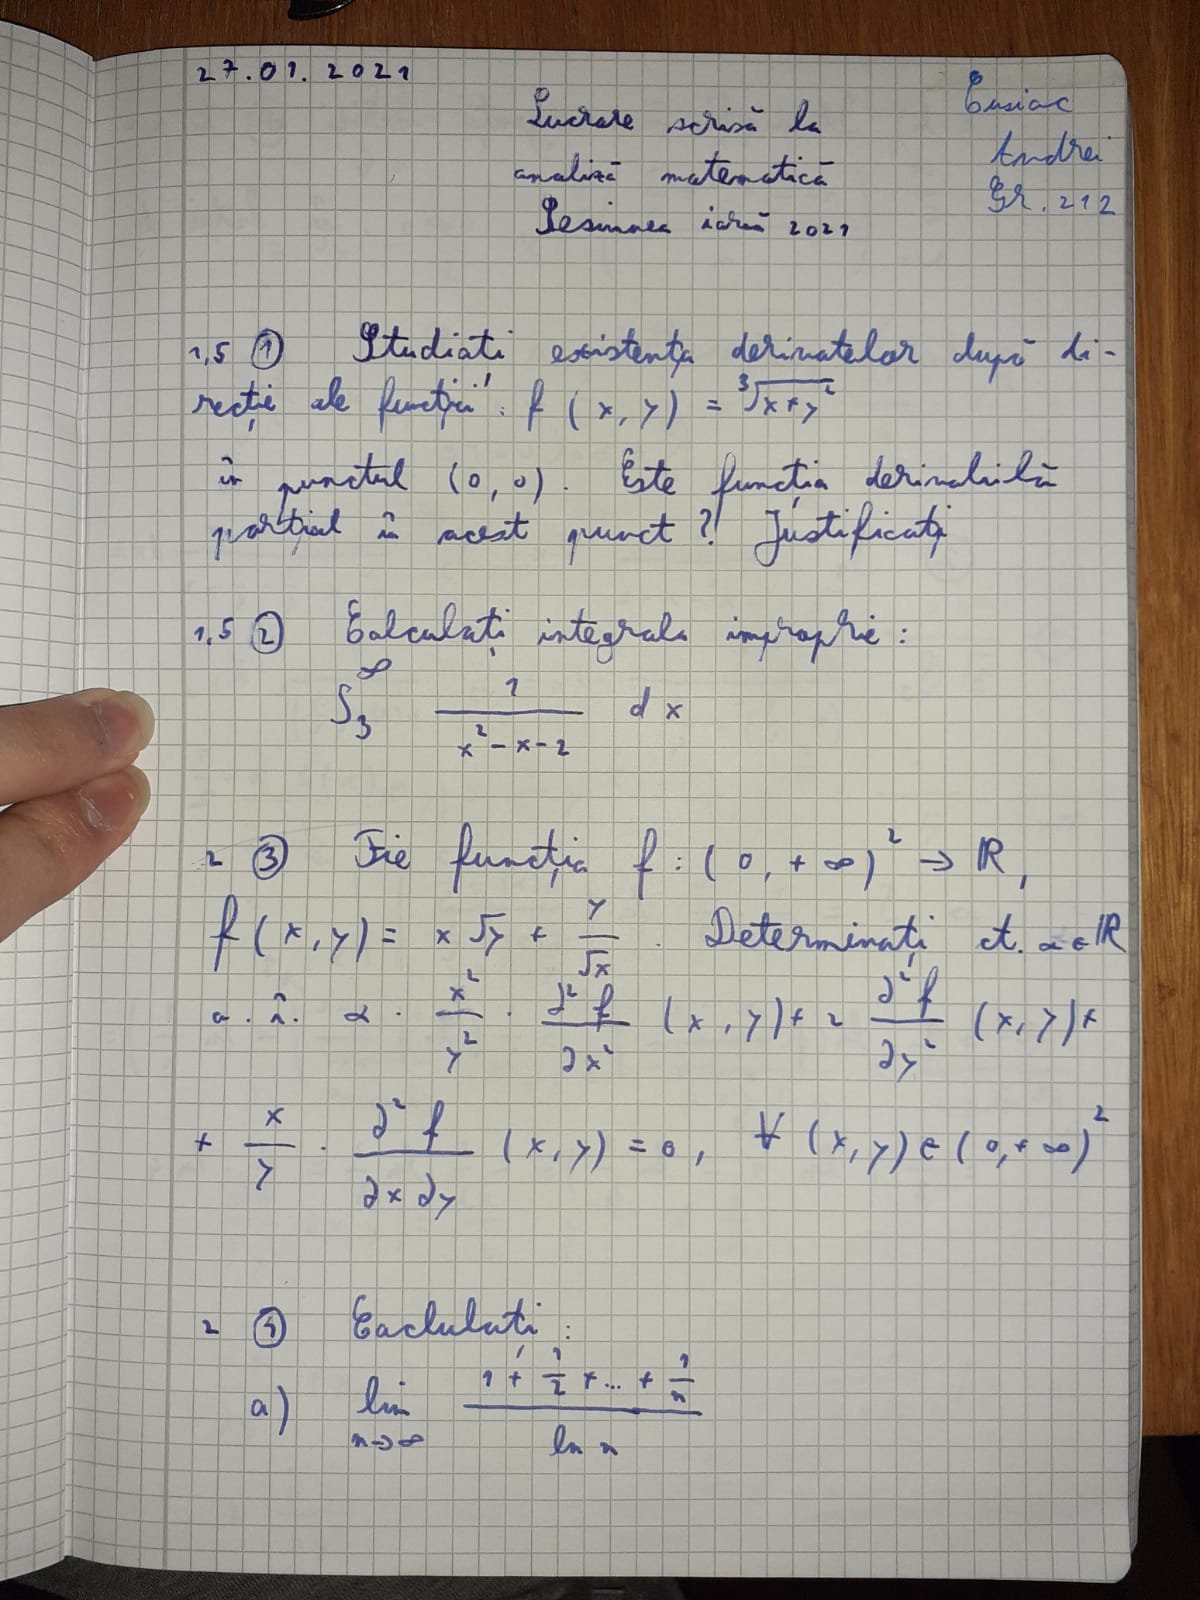 27.01.2021
Cusiac
Lucrare scrisă la
Andrei
analiză matematică
Gr. 212
Sesiunea iarnă 2021
1,5 ① Studiați existența derivatelor după di-
recție ale funcții: f(x,y) = ∛(x+y²)
în punctul (0,0). Este funcția derivabilă
parțial în acest punct? Justificați
1,5 ② Calculați integrala improprie:
∫₃^∞ 1/(x²-x-2) dx
2 ③ Fie funcția f:(0,+∞)² → ℝ,
f(x,y) = x√y + y/√x. Determinați ct. α∈ℝ
a.î. α · x²/y² · ∂²f/∂x² (x,y) + 2 ∂²f/∂y² (x,y) +
+ x/y · ∂²f/∂x∂y (x,y) = 0, ∀ (x,y) ∈ (0,+∞)²
2 ④ Caclulați:
a) lim n→∞ (1 + 1/2 + ... + 1/n)/ln n